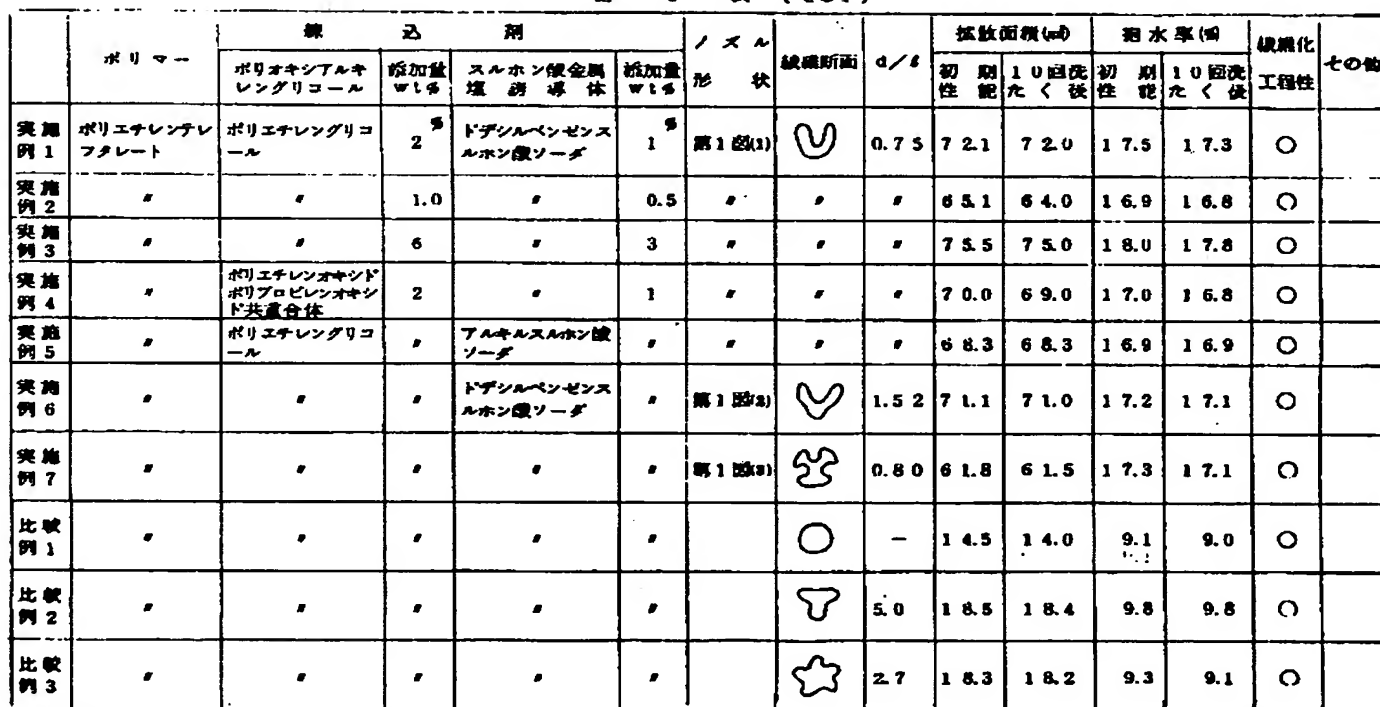 ポリマー 練込剤 ノズル形状 繊維断面 d/ℓ 拡散面積(cd) 抱水率(%) 繊維化工程性 その他
ポリオキシアルキレングリコール 添加量wt% スルホン酸金属塩誘導体 添加量wt% 初期性能 10回洗たく後 初期性能 10回洗たく後
実施例1 ポリエチレンテレフタレート ポリエチレングリコール 2% ドデシルベンゼンスルホン酸ソーダ 1% 第1図(1) 0.75 72.1 72.0 17.5 17.3 ○
実施例2 〃 〃 1.0 〃 0.5 〃 〃 〃 65.1 64.0 16.9 16.8 ○
実施例3 〃 〃 6 〃 3 〃 〃 〃 75.5 75.0 18.0 17.8 ○
実施例4 〃 ポリエチレンオキシドポリプロピレンオキシド共重合体 2 〃 1 〃 〃 〃 70.0 69.0 17.0 16.8 ○
実施例5 〃 ポリエチレングリコール 〃 アルキルスルホン酸ソーダ 〃 〃 〃 〃 68.3 68.3 16.9 16.9 ○
実施例6 〃 〃 〃 ドデシルベンゼンスルホン酸ソーダ 〃 第1図(2) 1.52 71.1 71.0 17.2 17.1 ○
実施例7 〃 〃 〃 〃 〃 第1図(3) 0.80 61.8 61.5 17.3 17.1 ○
比較例1 〃 〃 〃 〃 〃 － 14.5 14.0 9.1 9.0 ○
比較例2 〃 〃 〃 〃 〃 5.0 18.5 18.4 9.8 9.8 ○
比較例3 〃 〃 〃 〃 〃 2.7 18.3 18.2 9.3 9.1 ○